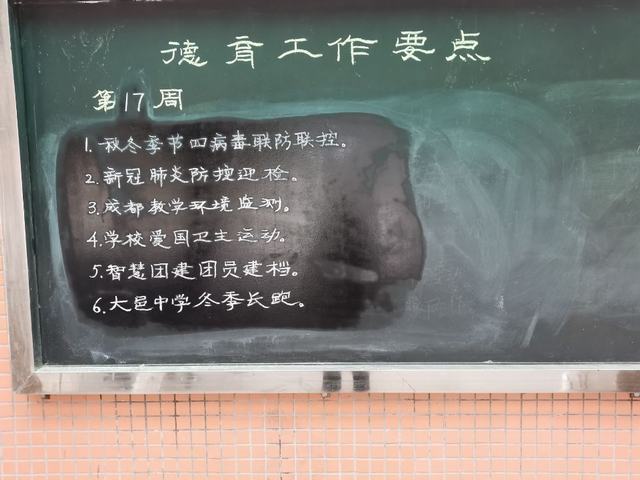 德育工作要点
第17周
1.秋冬季节四病毒联防联控。
2.新冠肺炎防控迎检。
3.成都教学环境监测。
4.学校爱国卫生运动。
5.智慧团建团员建档。
6.大邑中学冬季长跑。